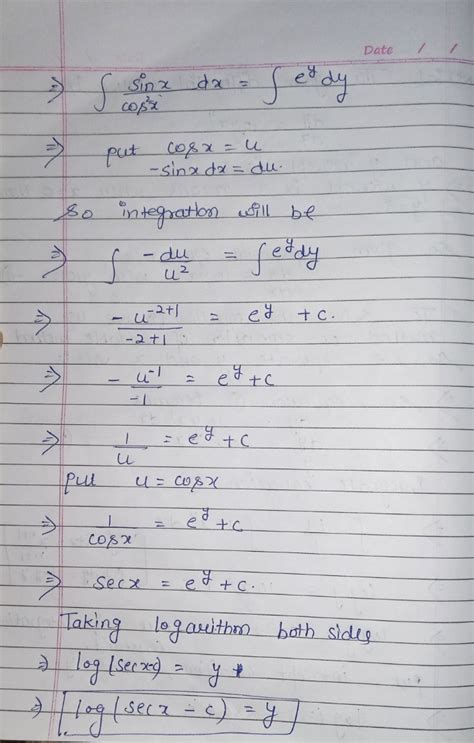 Date / /
⇒ ∫ sinx/cos²x dx = ∫ e^y dy
⇒ put cosx = u
-sinx dx = du.
So integration will be
⇒ ∫ -du/u² = ∫ e^y dy
⇒ -u^(-2+1)/(-2+1) = e^y + c.
⇒ -u^(-1)/-1 = e^y + c
⇒ 1/u = e^y + c
put u = cosx
⇒ 1/cosx = e^y + c
⇒ secx = e^y + c.
Taking logarithm both sides
⇒ log(secx-c) = y
⇒ log(secx - c) = y